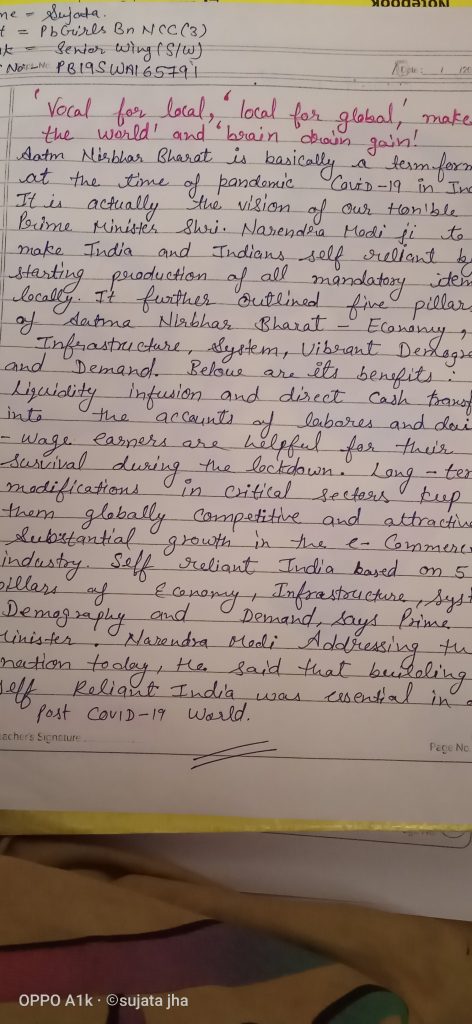 Notebook
me = Sujata.
t = PbGirls Bn NCC(3)
nk = Senior Wing (S/W)
No. PB19SWA165791
Date:
'Vocal for local,' 'local for global,' make
the world' and 'brain drain gain!
Aatm Nirbhar Bharat is basically a term form
at the time of pandemic Covid-19 in Ind
It is actually the vision of our Hon'ble
Prime Minister Shri. Narendra Modi ji to
make India and Indians self reliant b
starting production of all mandatory item
locally. It further outlined five pillar
of Aatma Nirbhar Bharat - Economy,
Infrastructure, System, Vibrant Demogra
and Demand. Below are its benefits :
Liquidity infusion and direct cash transf
into the accounts of labores and dai
- wage earners are helpful for their
survival during the lockdown. Long - ter
modifications in critical sectors keep
them globally competitive and attractive
Substantial growth in the e-Commerc
industry. Self reliant India based on 5
pillars of Economy, Infrastructure, Syst
Demography and Demand, says Prime
Minister. Narendra Modi Addressing th
nation today, He said that building
self Reliant India was essential in a
Post COVID-19 World.
eacher's Signature
Page No.
OPPO A1k · ©sujata jha